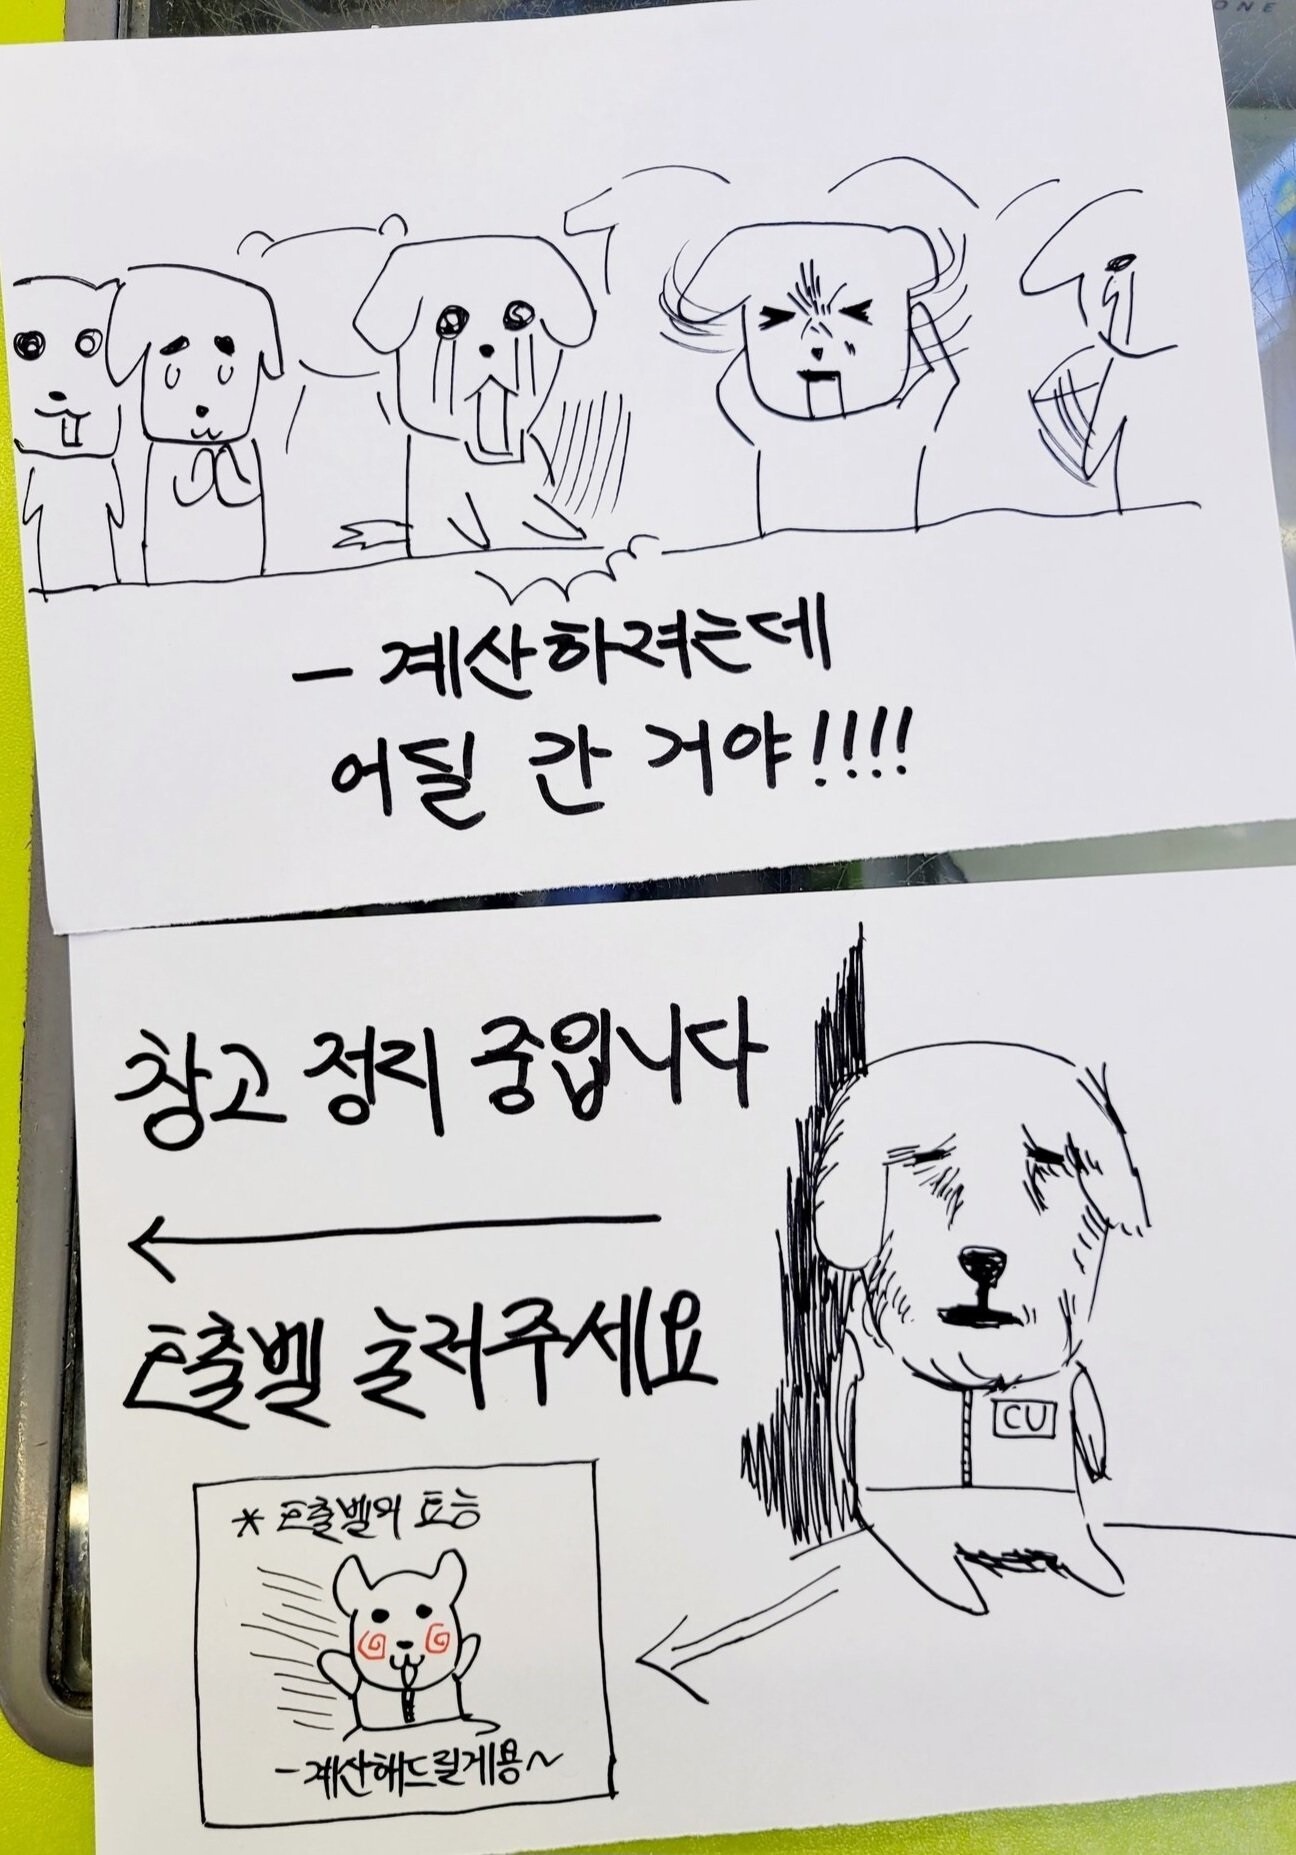 ONE
- 계산하려는데
어딜 간 거야!!!!
창고 정리 중입니다
호출벨 눌러주세요
CU
* 호출벨의 효능
- 계산해드릴게용~